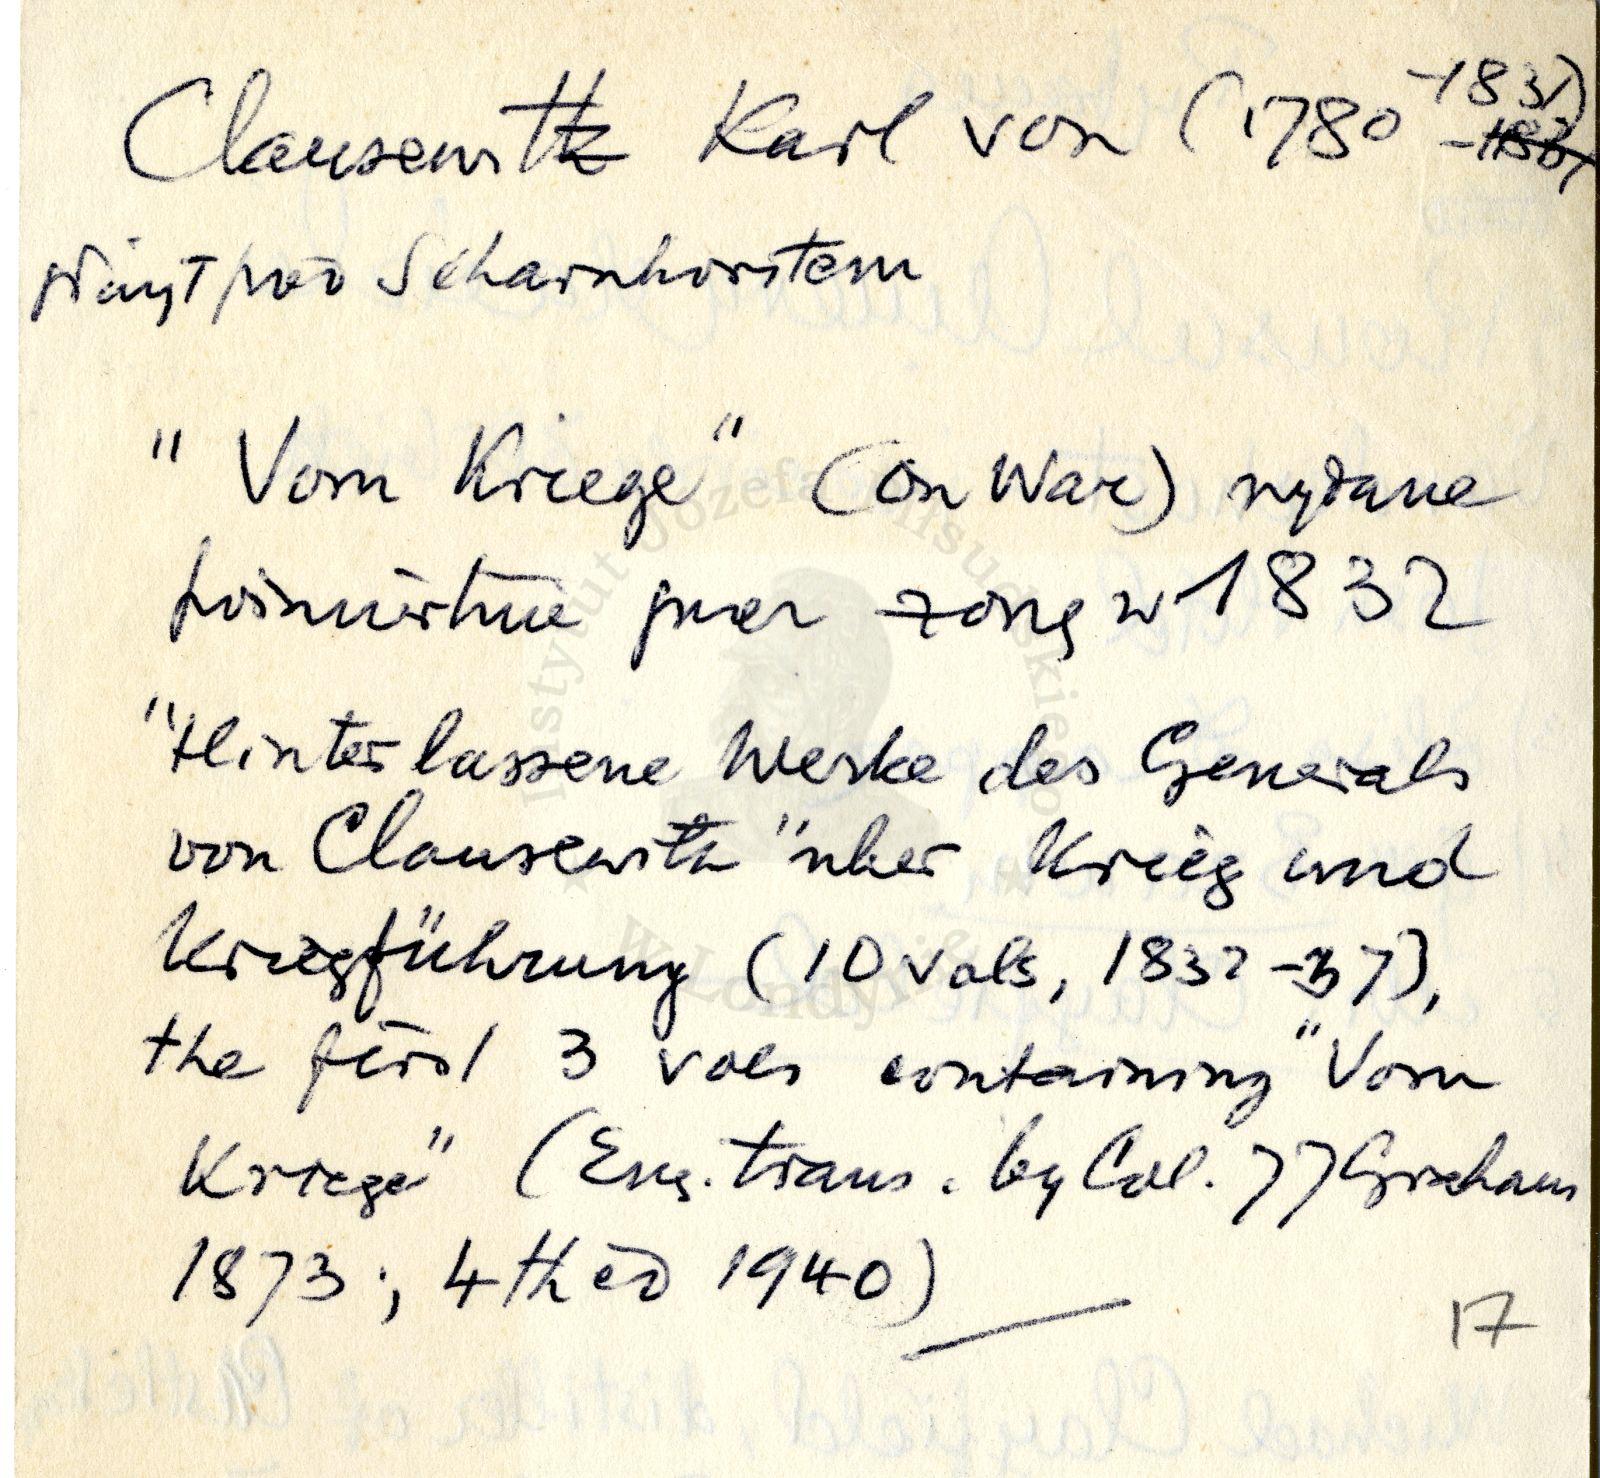 Clausewitz Karl von (1780 -1831)
służył pod Scharnhorstem
"Vom Kriege" (On War) wydane
pośmiertnie przez żonę w 1832
"Hinterlassene Werke des Generals
von Clausewitz" über Krieg und
Kriegführung (10 vols, 1832-37),
the first 3 vols containing "Vom
Kriege" (Eng. trans. by Col. JJ Graham
1873; 4th ed 1940)
17
Instytut Józefa Piłsudskiego
W Londynie